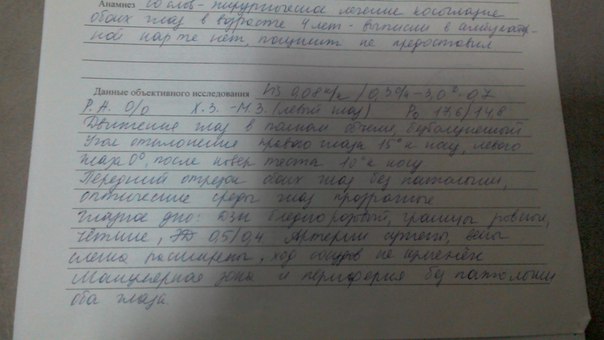 Анамнез со слов - хирургическое лечение косоглазие
обоих глаз в возрасте 4 лет - выписки в амбулатор-
ной карте нет, пациент не предоставил
Данные объективного исследования Vis 0,08 н/к / 0,3 -3,0 = 0,7
Р.А. 0/0 Х.З. - М.З. (левый глаз) Po 17,6/14,8
Движение глаз в полном объёме, безболезненной
Угол отклонения правого глаза 15° к носу, левого
глаза 0°, после ковер теста 10° к носу
Передний отрезок обоих глаз без патологии,
оптические среды глаз прозрачные
Глазное дно: ДЗН бледно розовый, границы ровные,
чёткие, 0,5/0,4 Артерии сужены, вены
слегка расширены, ход сосудов не изменён
Макулярная зона и периферия без патологии
оба глаза